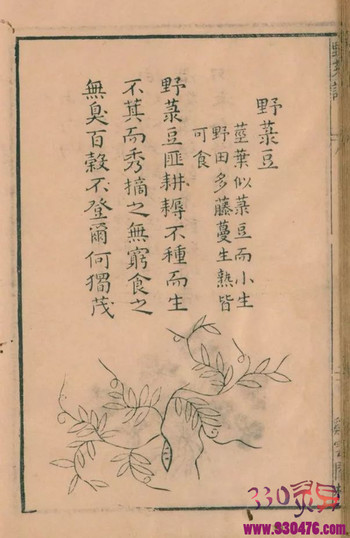 野菉豆
莖葉似菉豆而小生
野田多藤蔓生熟皆
可食
野菉豆匪耕耨不種而生
不萁而秀摘之無窮食之
無臭百穀不登爾何獨茂
330灵异
www.930476.com